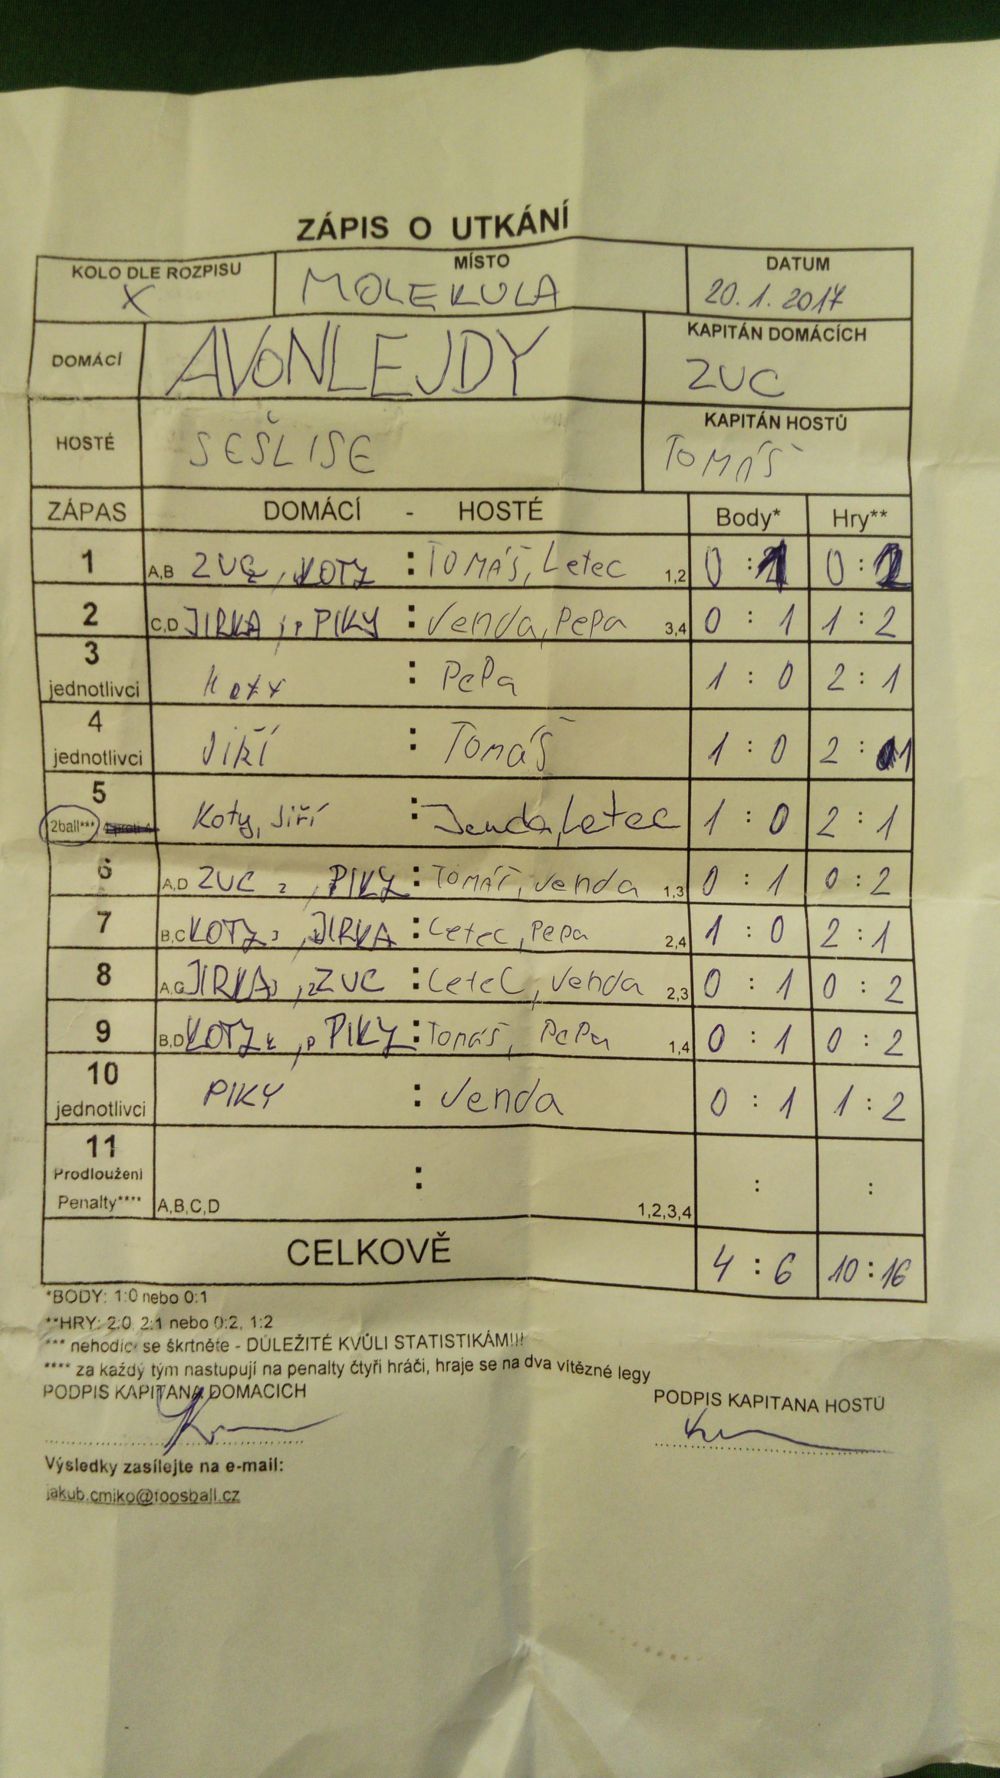 ZÁPIS O UTKÁNÍ
KOLO DLE ROZPISU MÍSTO DATUM
X MOLEKULA 20.1.2017
DOMÁCÍ AVONLEJDY KAPITÁN DOMÁCÍCH
ZUC
HOSTÉ SEŠLISE KAPITÁN HOSTŮ
TOMÁŠ
ZÁPAS DOMÁCÍ - HOSTÉ Body* Hry**
1 A,B ZUC, KOTY : TOMÁŠ, Letec 1,2 0 : 1 0 : 2
2 C,D JIRKA, PIKY : Venda, PePa 3,4 0 : 1 1 : 2
3 jednotlivci Koty : PePa 1 : 0 2 : 1
4 jednotlivci Jiří : Tomáš 1 : 0 2 : 1
5 2ball*** Koty, Jiří : Jenda, Letec 1 : 0 2 : 1
6 A,D ZUC, PIKY : TOMÁŠ, Venda 1,3 0 : 1 0 : 2
7 B,C KOTY, JIRKA : Letec, Pepa 2,4 1 : 0 2 : 1
8 A,C JIRKA, ZUC : Letec, Venda 2,3 0 : 1 0 : 2
9 B,D KOTY, PIKY : Tomáš, PePa 1,4 0 : 1 0 : 2
10 jednotlivci PIKY : Venda 0 : 1 1 : 2
11
Prodloužení :
Penalty**** A,B,C,D 1,2,3,4 : :
CELKOVĚ 4 : 6 10 : 16
*BODY: 1:0 nebo 0:1
**HRY: 2:0, 2:1 nebo 0:2, 1:2
*** nehodíc se škrtněte - DŮLEŽITÉ KVŮLI STATISTIKÁM!!!
**** za každý tým nastupují na penalty čtyři hráči, hraje se na dva vítězné legy
PODPIS KAPITÁNA DOMÁCÍCH PODPIS KAPITÁNA HOSTŮ
Výsledky zasílejte na e-mail:
jakub.cmiko@foosball.cz